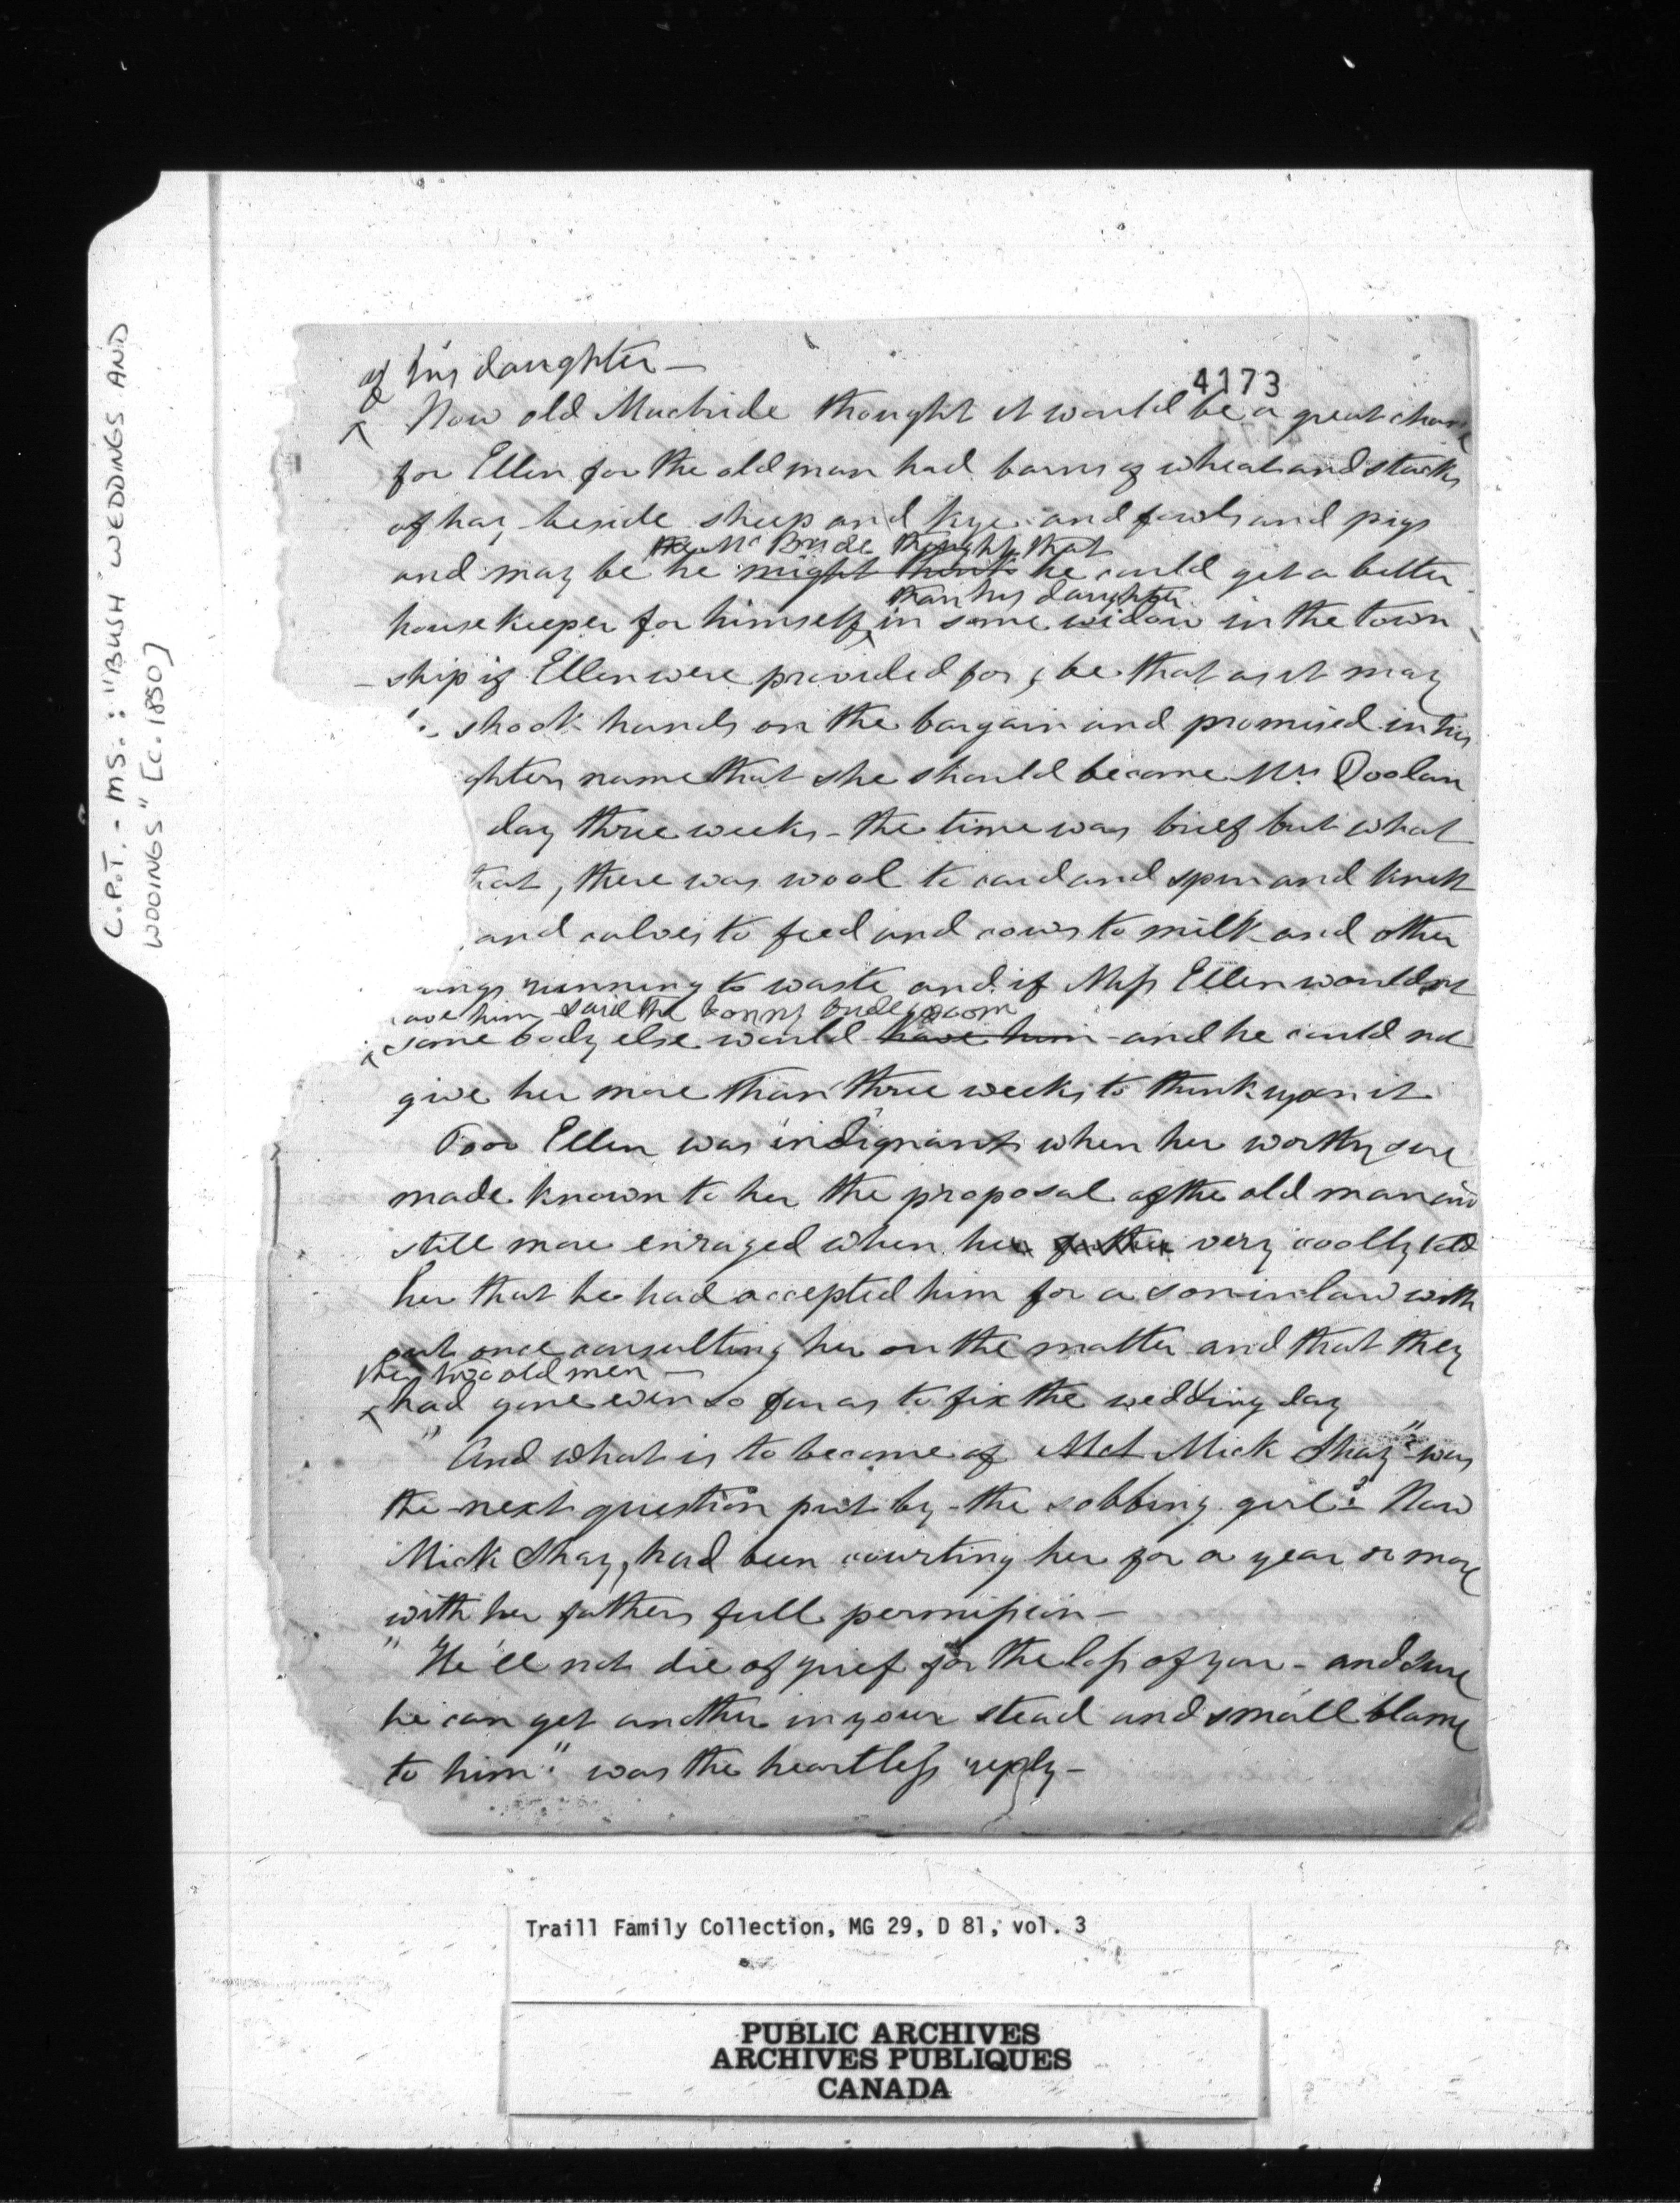 C.P.T. - MS.: "BUSH WEDDINGS AND
WOOINGS" [c. 1850]
of his daughter —
4173
Now old Macbride thought it would be a great chance
for Ellen for the old man had barns of wheat and stacks
of hay beside sheep and kye and fowls and pigs
Mc Bride thought that
and may be he might think he could get a better
than his daughter
housekeeper for himself, in some widow in the town
-ship if Ellen were provided for, be that as it may
shook hands on the bargain and promised in his
ghters name that she should become Mrs Doolan
day three weeks - the time was brief but what
that, there was wool to card and spin and knit
and calves to feed and cows to milk and other
ings running to waste and if Miss Ellen wouldnt
ave him said the bonny bridegroom
some body else would have him - and he could not
give her more than three weeks to think upon it
Poor Ellen was indignant when her worthy sire
made known to her the proposal of the old man and
still more enraged when her father very coolly told
her that he had accepted him for a son in law with
out once consulting her on the matter and that they
the two old men —
had gone even so far as to fix the wedding day
"And what is to become of Mick Shay?" was
the next question put by the sobbing girl - Now
Mick Shay, had been courting her for a year or more
with her fathers full permission -
"He'll not die of grief for the loss of you - and sure
he can get another in your stead and small blame
to him" was the heartless reply -
Traill Family Collection, MG 29, D 81, vol. 3
PUBLIC ARCHIVES
ARCHIVES PUBLIQUES
CANADA